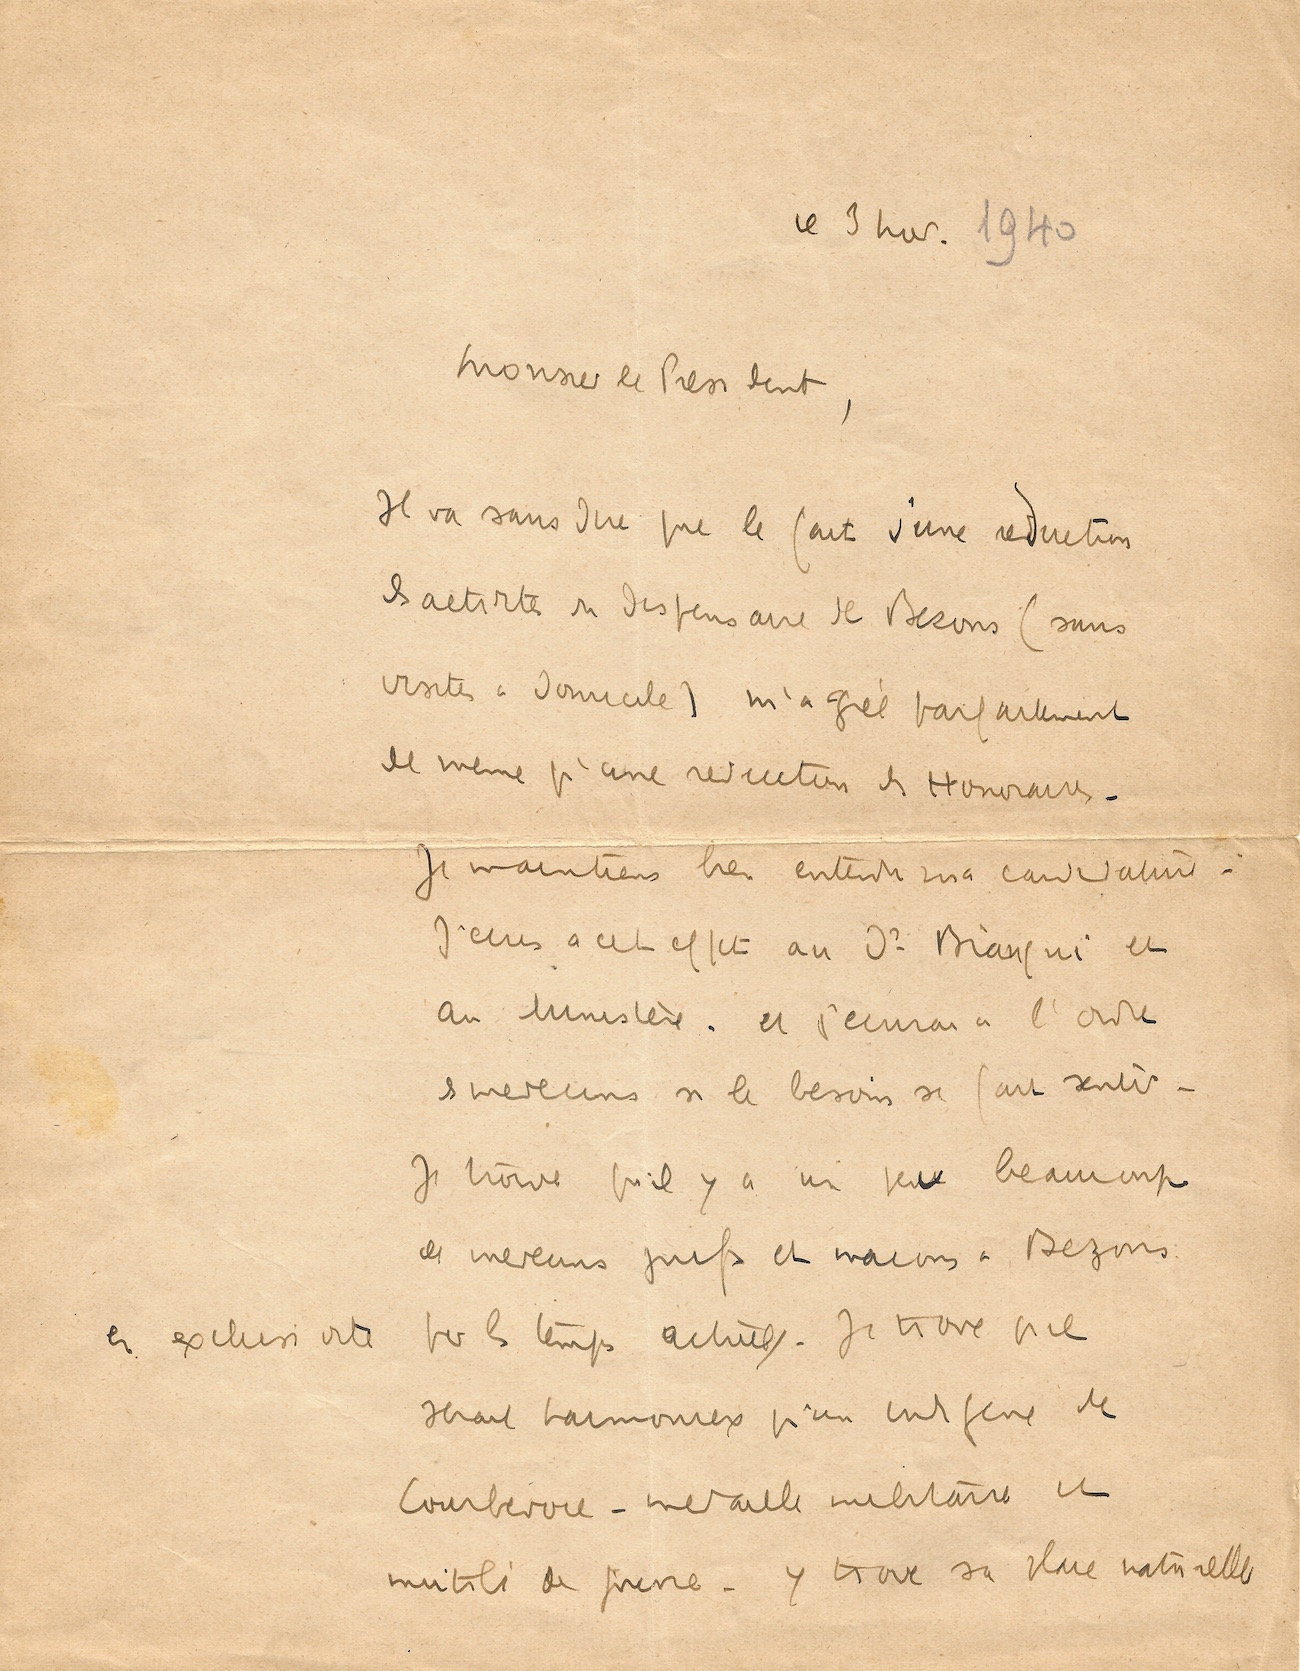 le 3 nov. 1940
Monsieur le Président,
Il va sans dire que le fait d'une reduction
des activites du dispensaire de Bezons (sans
visites a domicile) m'agrée parfaitement
de meme qu'une reduction des Honoraires -
Je maintiens bien entendu ma candidature -
J'ecris a cet effet au Dr Biancani et
au Ministère. et j'ecrirai a l'ordre
des medecins si le besoin se fait sentir -
Je trouve qu'il y a un peu beaucoup
de medecins juifs et maçons a Bezons
en exclusivité par les temps actuels. Je trouve qu'il
serait harmonieux qu'un indigene de
Courbevoie - medaille militaire et
mutilé de guerre - y trouve sa place naturelle